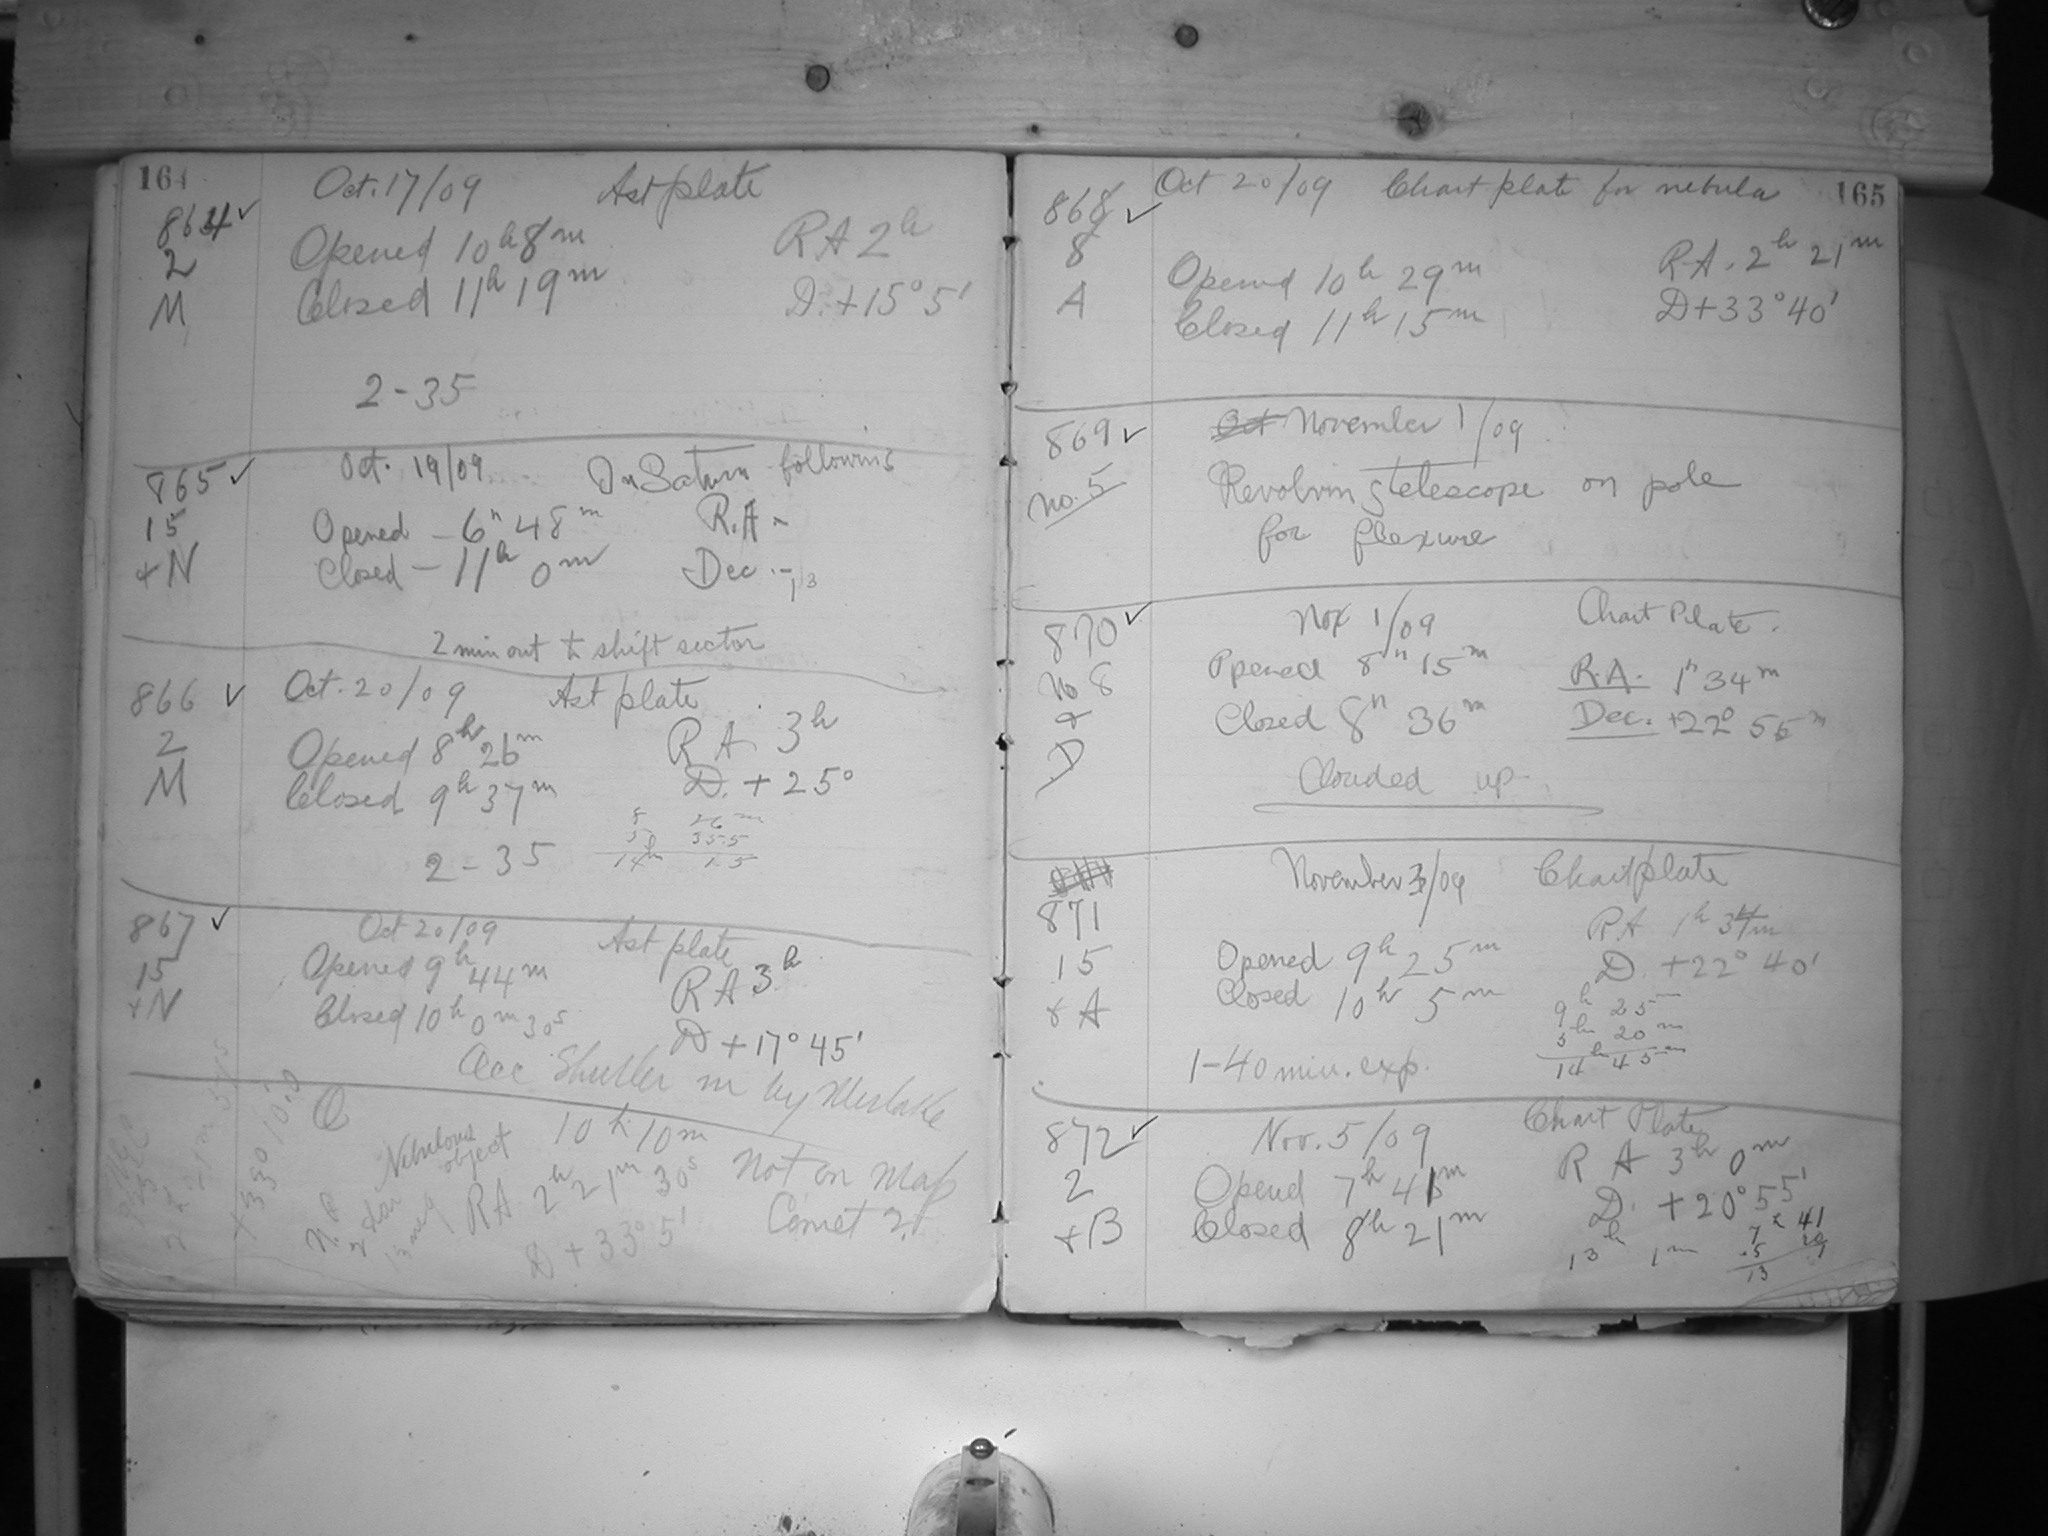 164
Oct. 17/09 Ast plate
864 ✓
2
M
Opened 10h 8m RA 2h
Closed 11h 19m D. +15° 5'
2-35
865 ✓
15
+N
Oct. 19/09 On Saturn following
Opened - 6h 48m R.A -
Closed - 11h 0m Dec -
2 min out to shift sector
866 ✓
2
M
Oct. 20/09 Ast plate
Opened 8h 26m RA 3h
Closed 9h 37m D. +25°
2-35
867 ✓
15
+N
Oct 20/09 Ast plate
Opened 9h 44m RA 3h
Closed 10h 0m 30s D +17° 45'
Shutter in by Mistake
Nebulous object
10h 10m
RA 2h 21m 30s
D + 33° 5'
Not on Map
Comet ?
+33° 10.'0
165
Oct 20/09 Chart plate for nebula
868 ✓
8
A
Opened 10h 29m R.A. 2h 21m
Closed 11h 15m D+33° 40'
869 ✓
No. 5
Oct November 1/09
Revolving telescope on pole
for flexure
870 ✓
No 8
+
D
Nov 1/09 Chart Plate.
Opened 8h 15m R.A. 1h 34m
Closed 8h 36m Dec. +22° 55m
Clouded up
871
15
+ A
November 3/09 Chart plate
RA 1h 34m
Opened 9h 25m D. +22° 40'
Closed 10h 5m
9h 25m
5h 20m
14h 45m
1-40 min. exp.
872 ✓
2
+B
Nov. 5/09 Chart Plate
Opend 7h 41m RA 3h 0m
Closed 8h 21m D. +20° 55'
13h 1m
7h 41
5 20
13 1